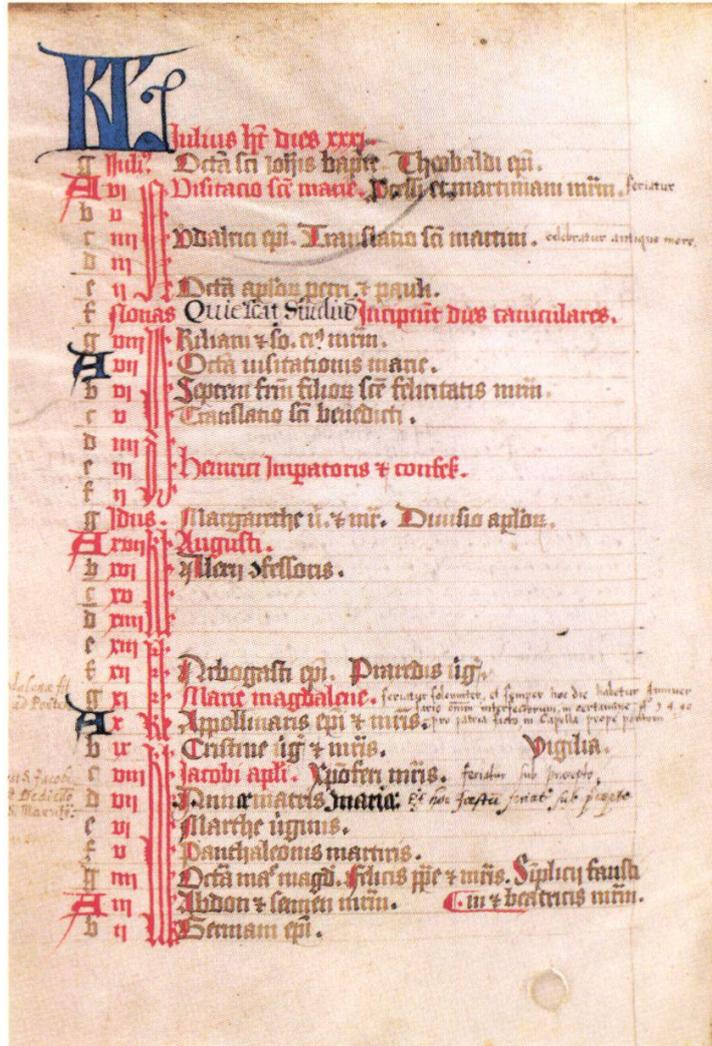 KL
Iulius ht dies xxxi.
g Iulij Octa sci iohis bapte. Theobaldi epi.
A vi Visitacio sce marie. Processi et martiniani mrm. feriatur
b v
c iiij Vdalrici epi. Translatio sci martini. celebratur antiquo more.
d iij
e ij Octa aplorum petri & pauli.
f Nonas Incipiunt dies caniculares.
g viij Kiliani & so. eius mrm.
A vij Octa visitationis marie.
b vi Septem frm filiorum sce felicitatis mrm.
c v Translatio sci benedicti.
d iiij
e iij Heinrici Imperatoris & confess.
f ij
g Idus. Margarethe v. & mr. Diuisio aplorum.
A xvij Augusti.
b xvi Alexij confessoris.
c xv
d xiiij
e xiij
f xij Arbogasti epi. Praxedis virg.
g xi Marie magdalene. feriatur solemniter, et semper hoc die habetur Anniuer
sario omnium interfectorum in certamine
A x Appollinaris epi & mris. pro patria facto in Capella prope pontem
b ix Cristine virg & mris. Vigilia.
c viij Jacobi apli. Xpofori mris. feriatur sub precepto.
d vij Annæ matris mariæ. Et hoc festum feriatur sub precepto
e vi Marthe virginis.
f v Panthaleonis martiris.
g iiij Octa mar magd. Felicis ppe & mris. Simplicij fausti
A iij Abdon & sennen mrm. ni & beatricis mrm.
b ij Germani epi.